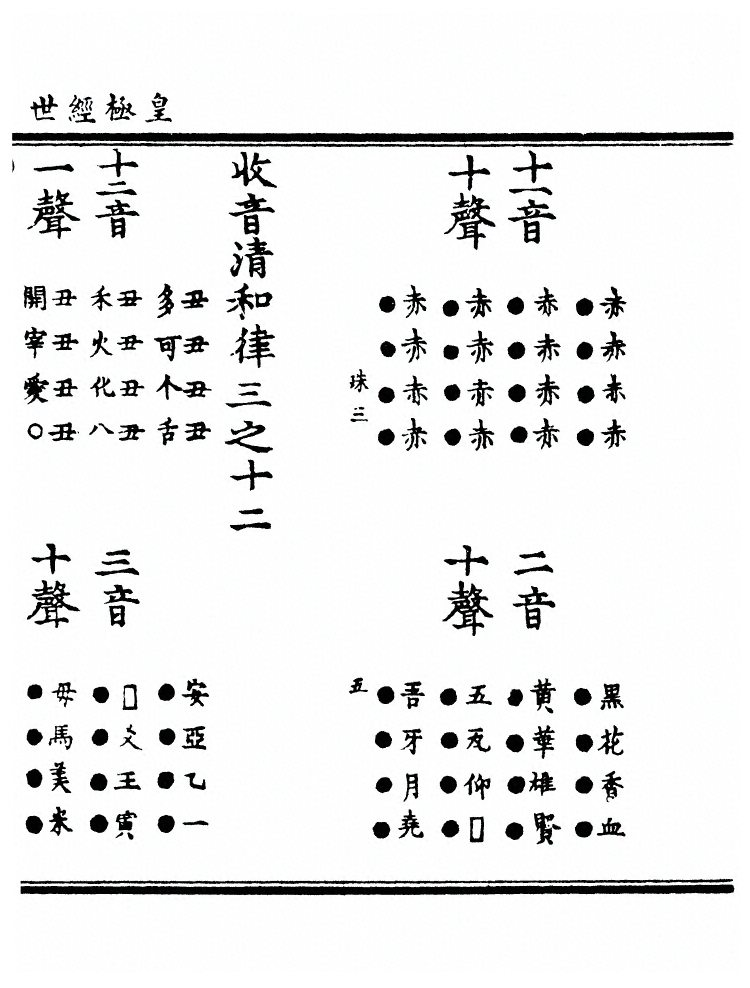 皇極經世
十一音
十聲
赤赤赤赤
●●●●
赤赤赤赤
●●●●
赤赤赤赤
●●●●
赤赤赤赤
●●●●
珠三
二音
十聲
黑花香血
●●●●
黄華雄賢
●●●●
五瓦仰□
●●●●
吾牙月堯
●●●●
五
收音清和律三之十二
十二音
一聲
丑丑丑丑
多可个舌
丑丑丑丑
禾火化八
丑丑丑丑
開宰愛○
三音
十聲
安亞乙一
●●●●
□爻王寅
●●●●
母馬美米
●●●●